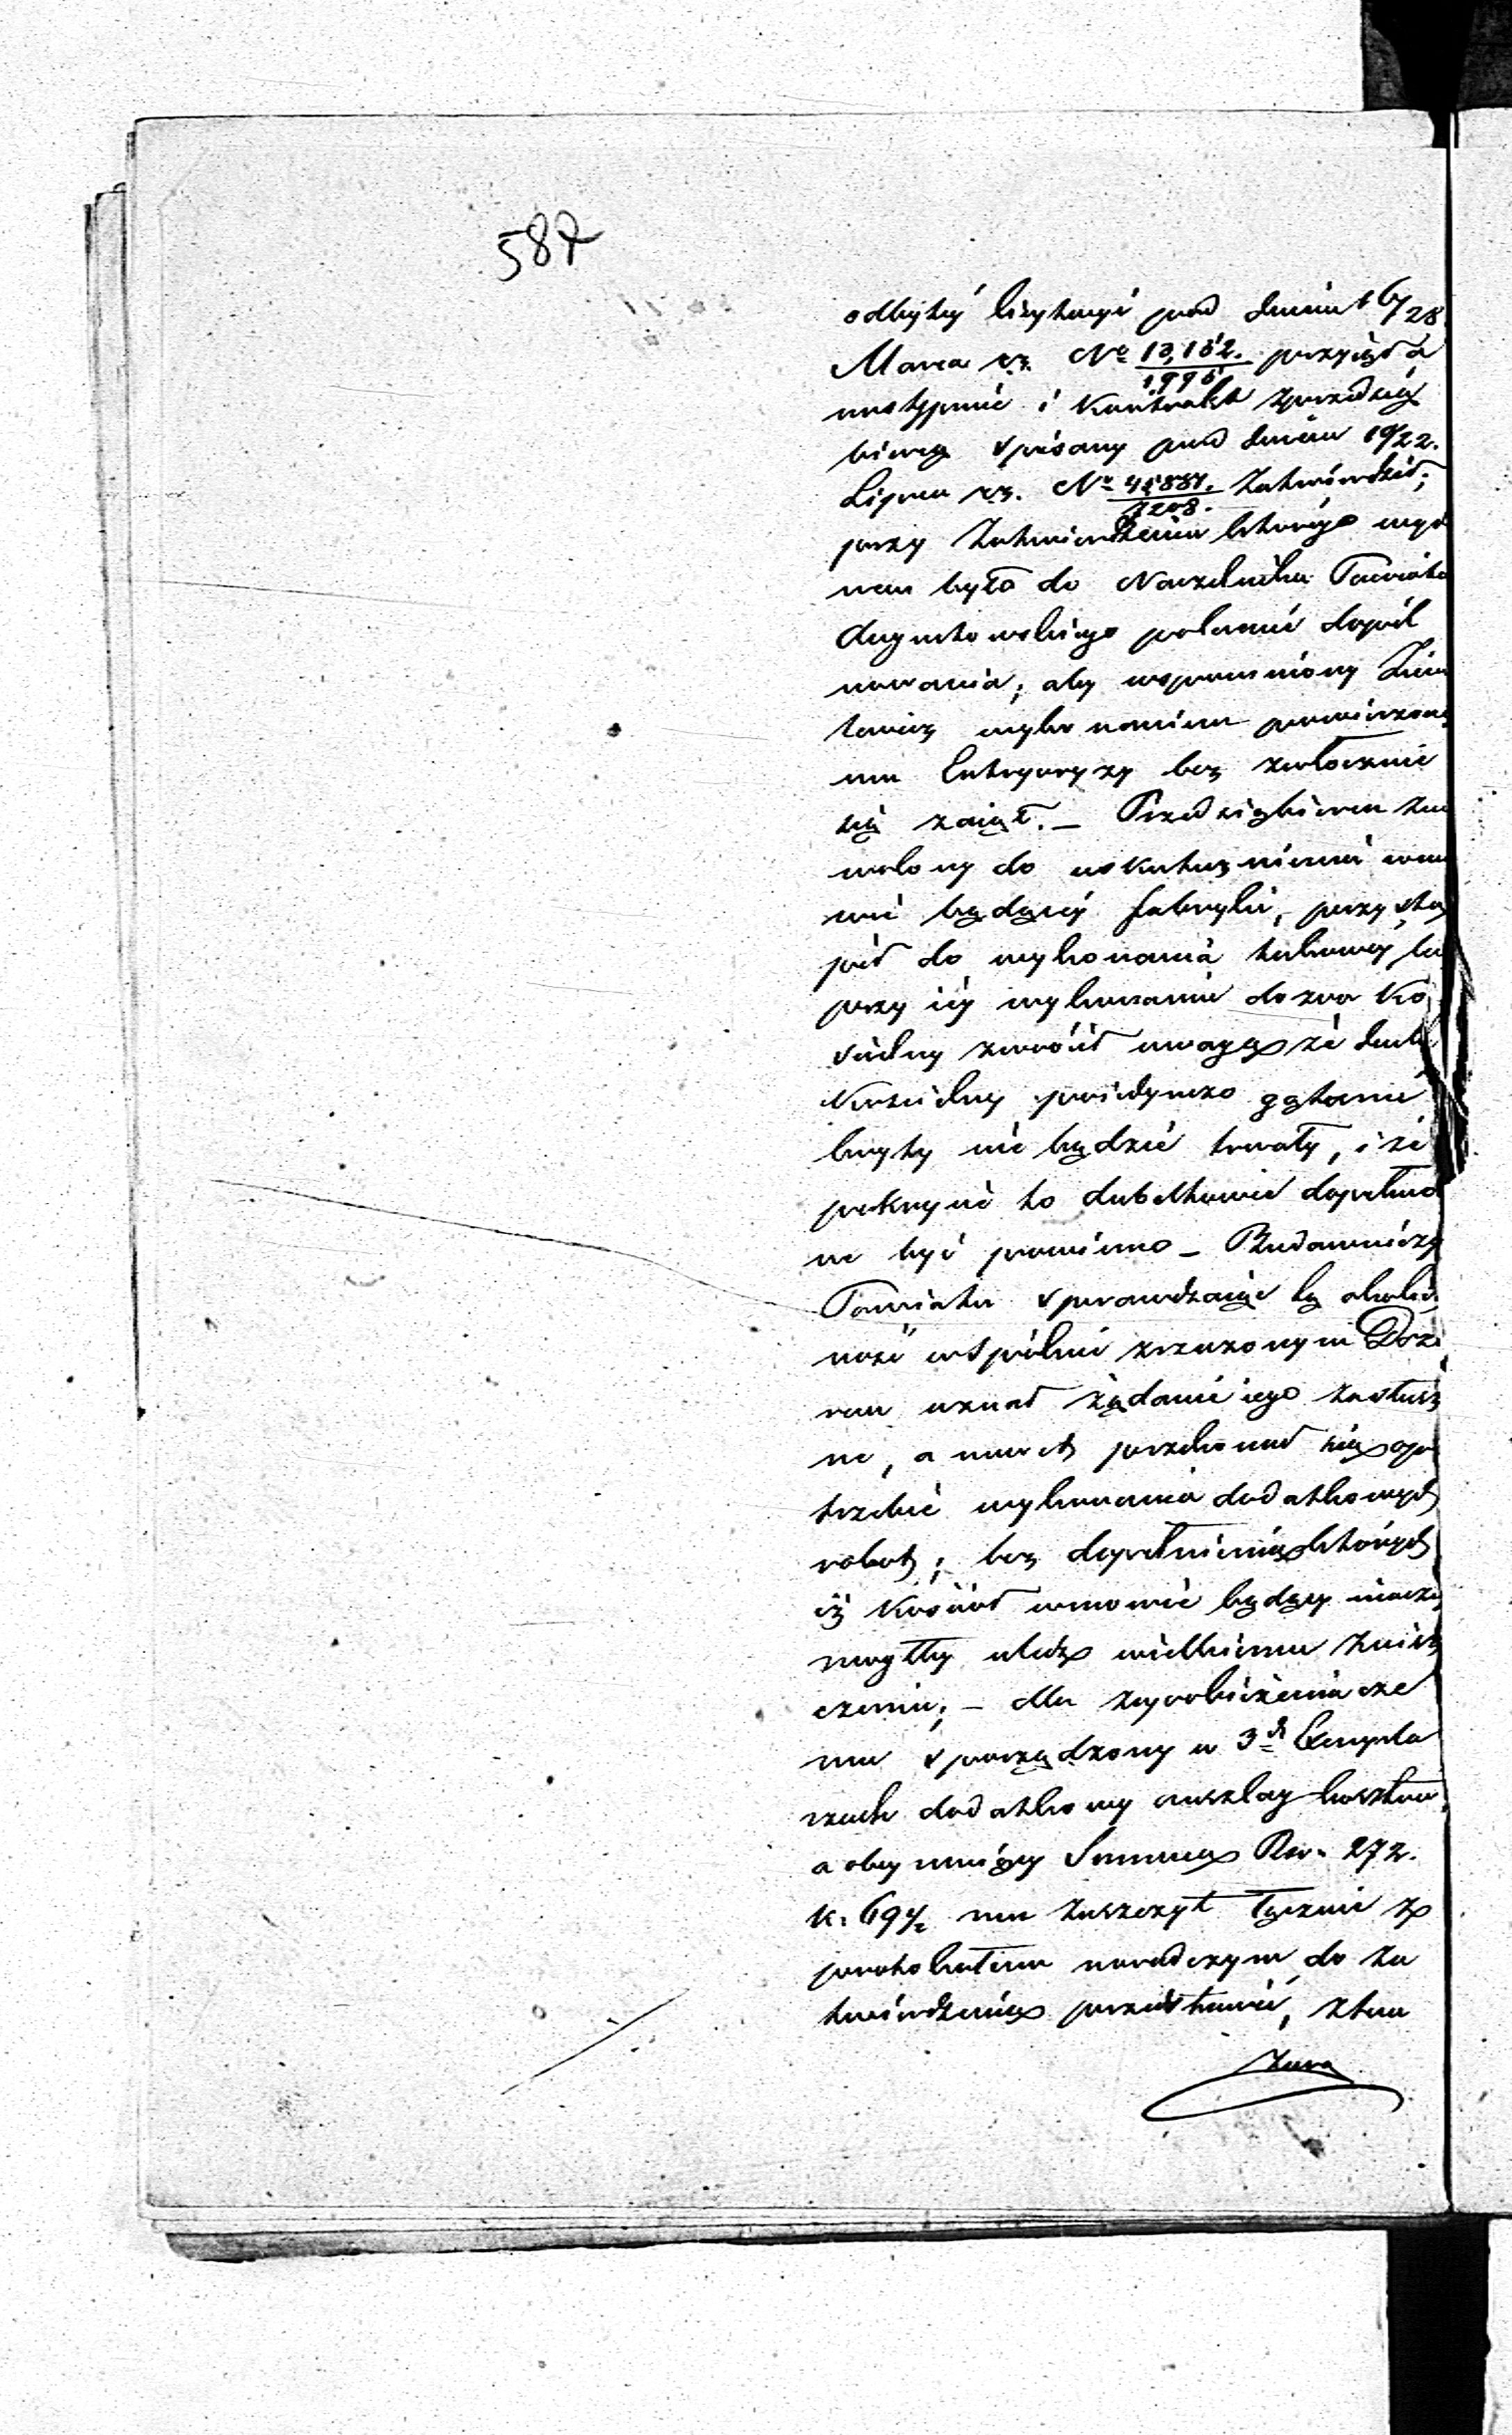 587
odbytéy licytacyi pod dniem 16/28
Marca r.z. No 13,152./1995 przyiął a
nastypnie i kontrakt z przedsię
biercą spisany pod dniem 10/22.
Lipca r.z. No 41881./7208. zatwierdził;
przy zatwierdzeniu którego wyda
nem było do Naczelnika Powiatu
Augustowskiego polecenie dopil
nowania, aby wspomniony
wykonaniem powierzone
mu Entrepryzy bez zwłocznie
się zaiął. — Przedsiębierca zu
wolony do uskutecznienia w mo
wie będącéy fabryki, przystą
pił do wykonania takowéy, lecz
przy iéy wykonaniu dozor Ko
ścielny zwrócił uwagę że dach
Kościelny poiedynczo gątami
kryty nie będzie trwały, i że
pokrycie to dubeltowie dopełnio
ne być powinno — Budowniczy
Powiatu sprawdzaiąc tę okolicz
ność wspólnie z rzeczonym Dozo
rem uznał żądanie iego za słusz
ne, a nawet przekonał się o po
trzebie wykonania dodatkowych
robot, bez dopełnienia których
iż Kościoł w mowie będący niezu
wległy wielkiemu znisz
czeniu; — dla zapobieżenia cze
mu sporządzony w 3ch Exempla
rzach dodatkowy anszlag kosztow
a obeymuiący Summę Rsr. 272.
k. 69 1/2 ma zaszczyt łącznie z
protokułem naradczym do za
twierdzenia przedstawić, z tem